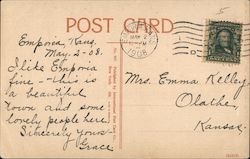 POST CARD
Emporia, Kans.
May. 2-08.
I like Emporia
fine - this is
a beautiful
town and some
lovely people here.
Sincerely yours-
Grace
MAY 2
1908
Mrs. Emma Kelley
Olathe,
Kansas.